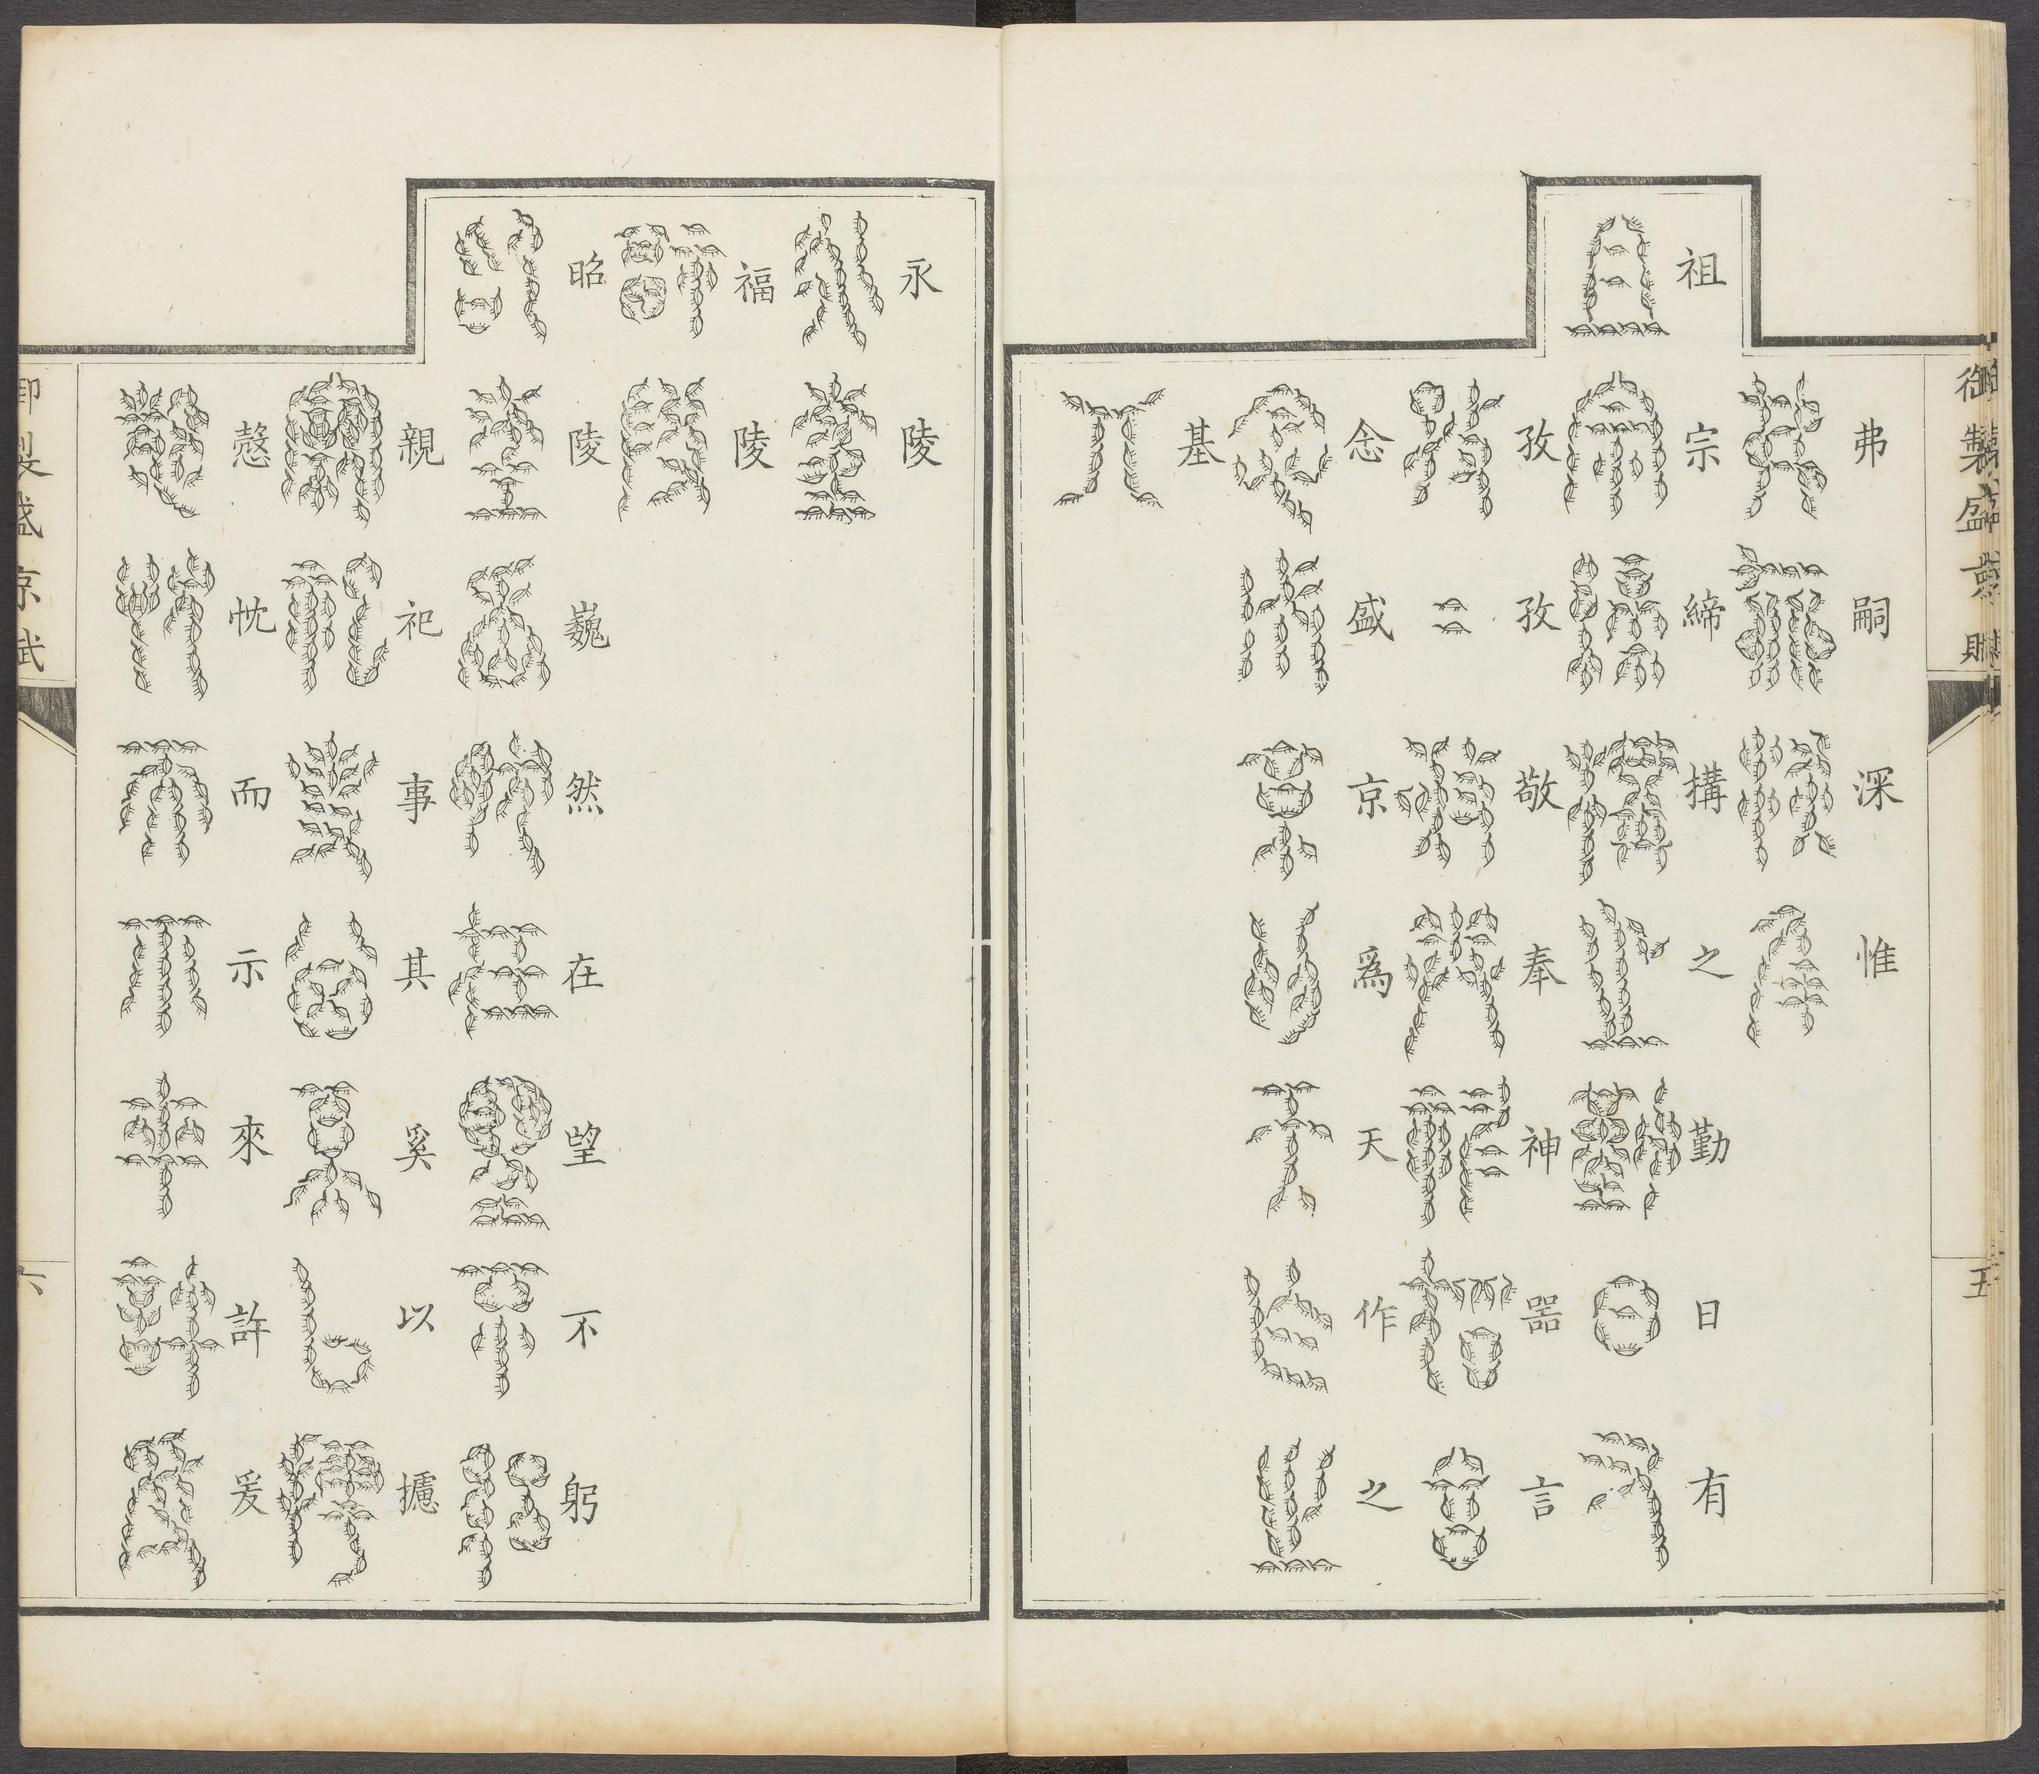 御製盛京賦
五
弗嗣深惟
祖宗締搆之勤日有
孜孜敬奉神器言
念盛京為天作之
基
永陵
福陵
昭陵巍然在望不躬
親祀事其奚以攄
慤忱而示來許爰
六